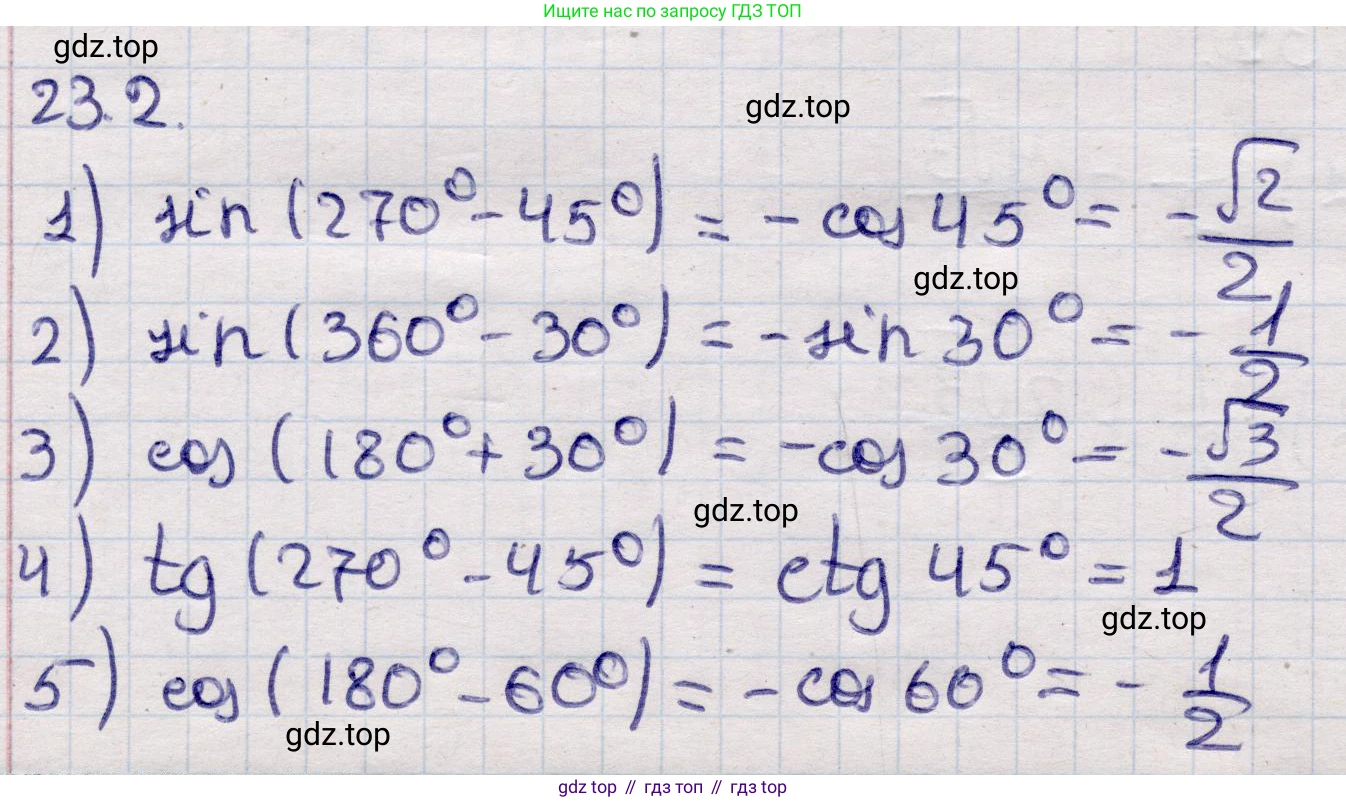 Ищите нас по запросу ГДЗ ТОП
gdz.top
23.2.
gdz.top
1) sin (270° - 45°) = - cos 45° = - √2/2
gdz.top
2) sin (360° - 30°) = - sin 30° = - 1/2
3) cos (180° + 30°) = - cos 30° = - √3/2
gdz.top
4) tg (270° - 45°) = ctg 45° = 1
gdz.top
5) cos (180° - 60°) = - cos 60° = - 1/2
gdz.top
gdz top // гдз топ // gdz top